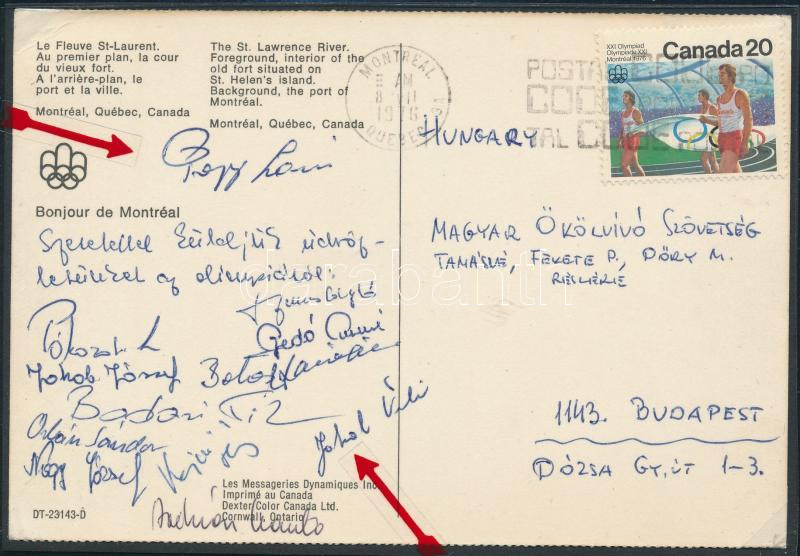 Le Fleuve St-Laurent.
Au premier plan, la cour
du vieux fort.
A l'arrière-plan, le
port et la ville.
Montréal, Québec, Canada
The St. Lawrence River.
Foreground, interior of the
old fort situated on
St. Helen's island.
Background, the port of
Montreal.
Montréal, Québec, Canada
MONTRÉAL
AM
1976
QUEBEC
POSTAL
CODE
CODE
XXI Olympiad
Olympiade XXI
Montréal 1976
Canada 20
Papp Laci
HUNGARY
Bonjour de Montréal
Szeretettel küldjük üdvöz-
letünket az olimpiáról:
MAGYAR ÖKÖLVÍVÓ SZÖVETSÉG
TAMÁSNÉ, FEKETE P., DŐRY M.
RÉSZÉRE
Gedó
Jakab József
Badari Tib
Orbán Sándor
Nagy József
Jakab
1143. BUDAPEST
DÓZSA GY. ÚT 1-3.
Les Messageries Dynamiques Inc
Imprimé au Canada
Dexter Color Canada Ltd.
Cornwall, Ontario
DT-23143-D
darabanth